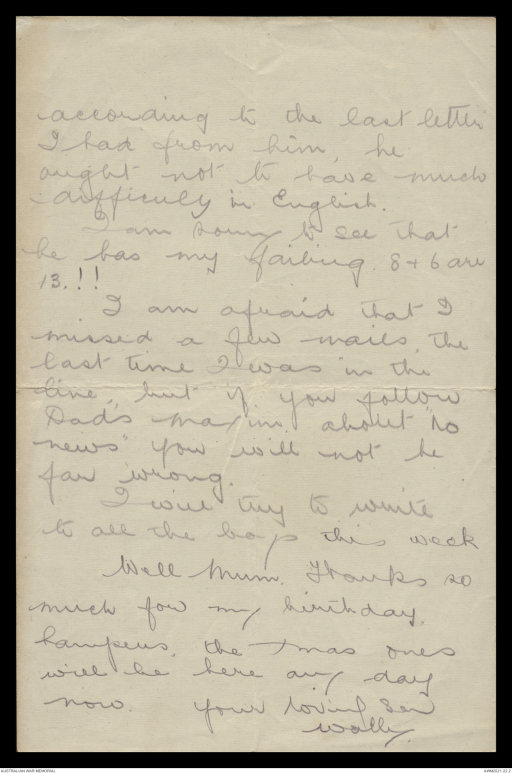 according to the last letter
I had from him, he
ought not to have much
difficuly in English.
I am sorry to see that
he has my failing. 8 + 6 are
13.!!
I am afraid that I
missed a few mails, the
last time I was in the
line, but if you follow
Dad's maxim about "No
news" you will not be
far wrong.
I will try to write
to all the boys this week
Well Mum. Thanks so
much for my birthday,
hampers, the Xmas ones
will be here any day
now. Your loving Son
Wally.
AUSTRALIAN WAR MEMORIAL